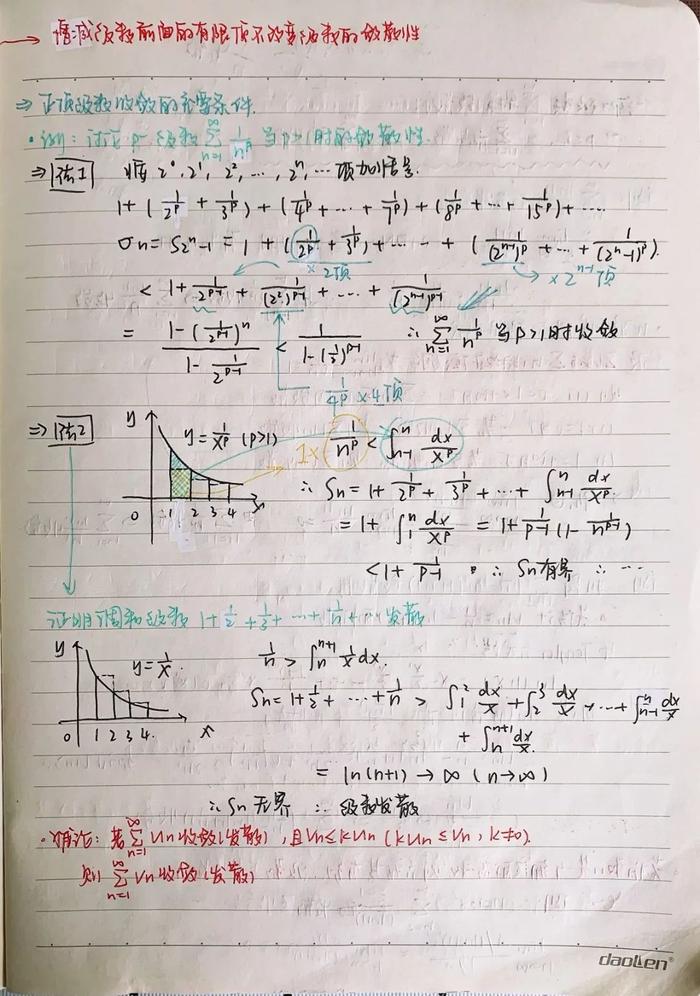 → 增.减级数前面的有限项不改变级数的敛散性
⇒ 正项级数收敛的充要条件.
·例: 讨论 p-级数 ∑_{n=1}^{∞} 1/n^p 当p>1时的敛散性.
⇒ 法1 将 2^0, 2^1, 2^2, ..., 2^n, ... 项加括号.
1+(1/2^p + 1/3^p)+(1/4^p+...+1/7^p)+(1/8^p+...+1/15^p)+....
σn = S_{2^n-1} = 1+(1/2^p+1/3^p)+...+(1/(2^{n-1})^p+...+1/(2^n-1)^p).
×2项 ×2^{n-1}项
< 1+1/2^{p-1}+1/(2^2)^{p-1}+...+1/(2^{n-1})^{p-1}
= (1-(1/2^{p-1})^n)/(1-1/2^{p-1}) < 1/(1-(1/2)^{p-1}) ∴ ∑_{n=1}^{∞} 1/n^p 当p>1时收敛
1/4^p ×4项
⇒ 法2 y y=1/x^p (p>1) 1× 1/n^p < ∫_{n-1}^{n} dx/x^p
0 1 2 3 4 x
∴ Sn=1+1/2^p+1/3^p+...+ ∫_{n-1}^{n} dx/x^p.
=1+ ∫_1^n dx/x^p = 1+1/(p-1)(1-1/n^{p-1})
<1+1/(p-1) ∴ Sn有界 ∴ ...
证明调和级数 1+1/2+1/3+...+1/n+... 发散
y y=1/x. 1/n > ∫_n^{n+1} 1/x dx.
0 1 2 3 4. x
Sn=1+1/2+...+1/n > ∫_1^2 dx/x+∫_2^3 dx/x+...+∫_{n-1}^{n} dx/x
+ ∫_n^{n+1} dx/x.
= ln(n+1) → ∞ (n→∞)
∴ Sn无界 ∴ 级数发散
·推论: 若∑_{n=1}^{∞} Un收敛(发散), 且Vn≤kUn (kUn≤Vn, k≠0).
则 ∑_{n=1}^{∞} Vn收敛(发散)
daoLen®